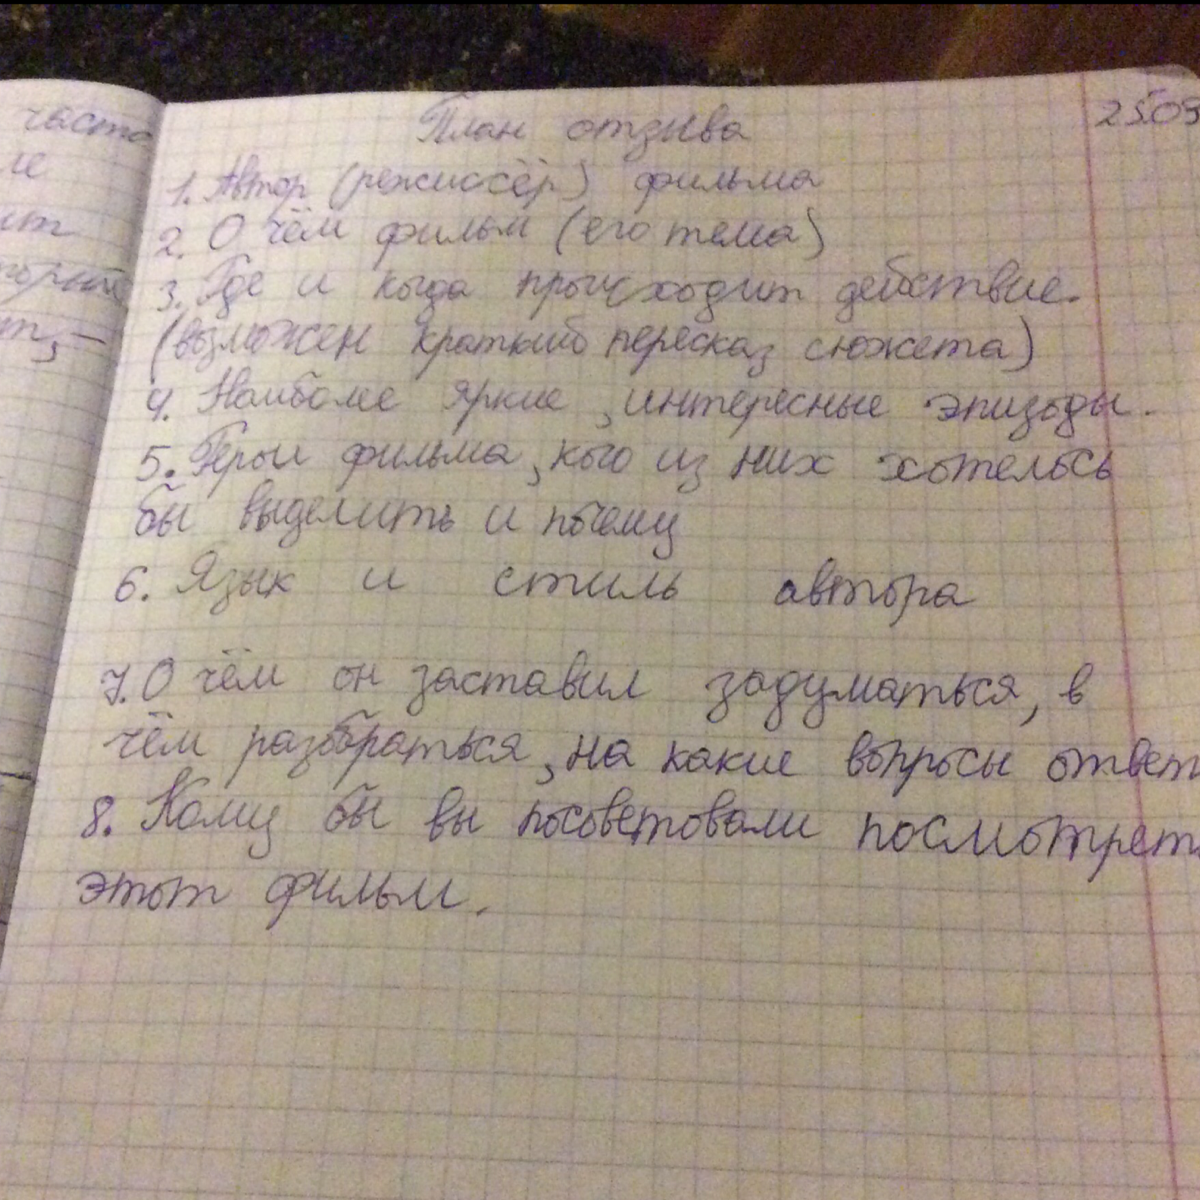 часто
План отзыва
25.09
1. Автор (режиссёр) фильма
2. О чём фильм (его тема)
3. Где и когда происходит действие.
(возможен краткий пересказ сюжета)
4. Наиболее яркие, интересные эпизоды.
5. Герои фильма, кого из них хотелось
бы выделить и почему
6. Язык и стиль автора
7. О чём он заставил задуматься, в
чём разобраться, на какие вопросы ответ
8. Кому бы вы посоветовали посмотрет
этот фильм.